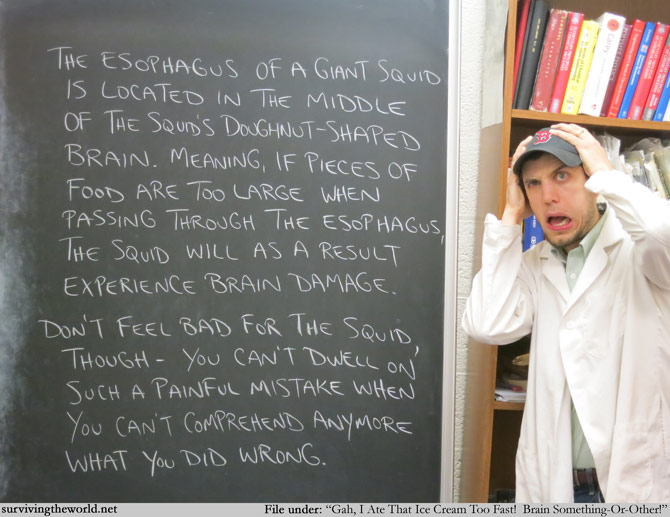 THE ESOPHAGUS OF A GIANT SQUID
IS LOCATED IN THE MIDDLE
OF THE SQUID'S DOUGHNUT-SHAPED
BRAIN. MEANING, IF PIECES OF
FOOD ARE TOO LARGE WHEN
PASSING THROUGH THE ESOPHAGUS,
THE SQUID WILL AS A RESULT
EXPERIENCE BRAIN DAMAGE.
DON'T FEEL BAD FOR THE SQUID,
THOUGH - YOU CAN'T DWELL ON
SUCH A PAINFUL MISTAKE WHEN
YOU CAN'T COMPREHEND ANYMORE
WHAT YOU DID WRONG.
B
Carey
survivingtheworld.net
File under: “Gah, I Ate That Ice Cream Too Fast! Brain Something-Or-Other!”